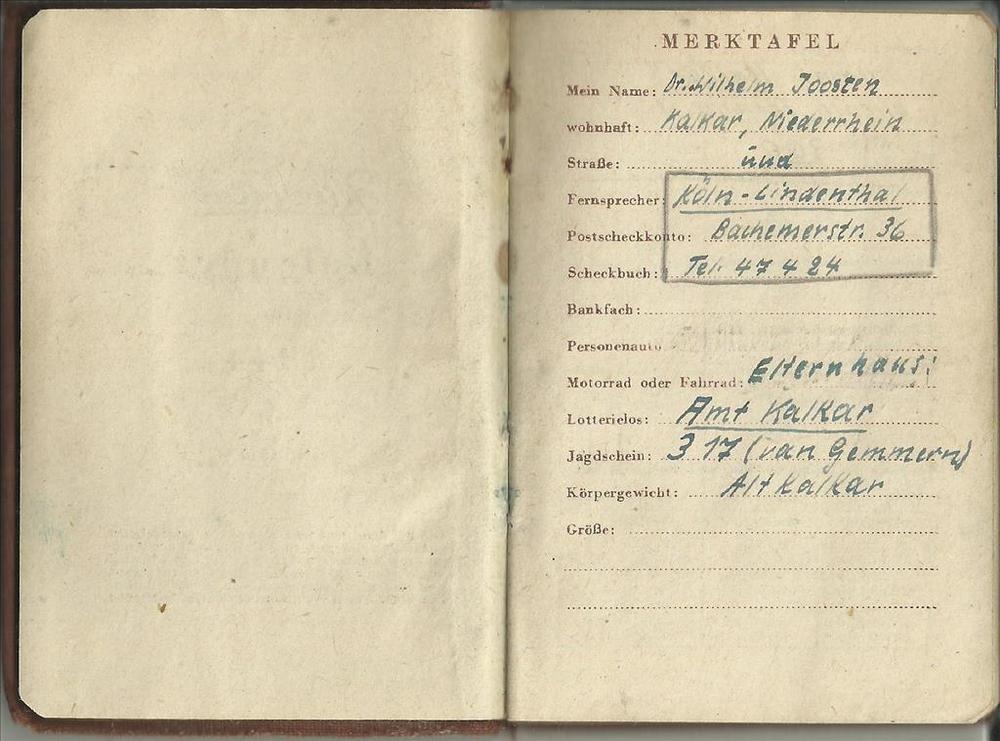 MERKTAFEL
Mein Name: Dr. Wilhelm Joosten
wohnhaft: Kalkar, Niederrhein
Straße: und
Fernsprecher: Köln-Lindenthal
Postscheckkonto: Bachemerstr. 36
Scheckbuch: Tel. 47 4 24
Bankfach:
Personenauto
Motorrad oder Fahrrad: Elternhaus:
Lotterielos: Amt Kalkar
Jagdschein: 317 (van Gemmern)
Körpergewicht: Altkalkar
Größe: